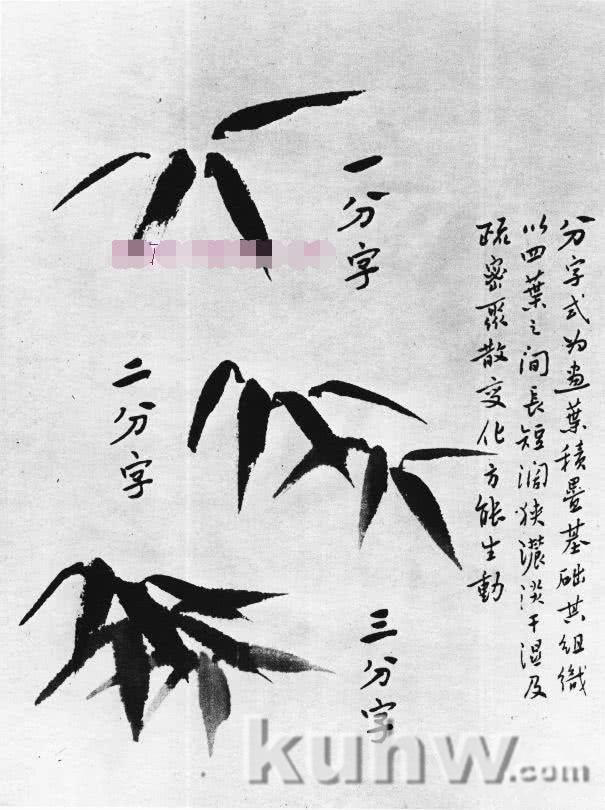 分字式为画葉積疊基础其组織
以四葉之间長短阔狭濃淡干湿及
疏密聚散变化方能生動
一分字
二分字
三分字
kunw.com